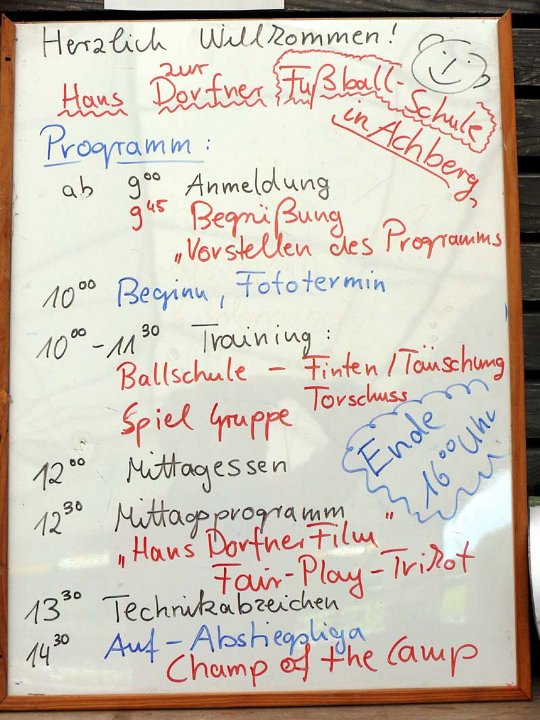 Herzlich Willkommen!
zur
Hans Dorfner Fußball-Schule
in Achberg,
Programm:
ab 9⁰⁰ Anmeldung
9⁴⁵ Begrüßung
„Vorstellen des Programms
10⁰⁰ Beginn, Fototermin
10⁰⁰ - 11³⁰ Training:
Ballschule - Finten/Täuschung
Torschuss
Spiel Gruppe
Ende
16⁰⁰ Uhr
12⁰⁰ Mittagessen
12³⁰ Mittagsprogramm
„Hans Dorfner Film"
Fair-Play-Trikot
13³⁰ Technikabzeichen
14³⁰ Auf-Abstiegsliga
Champ of the Camp